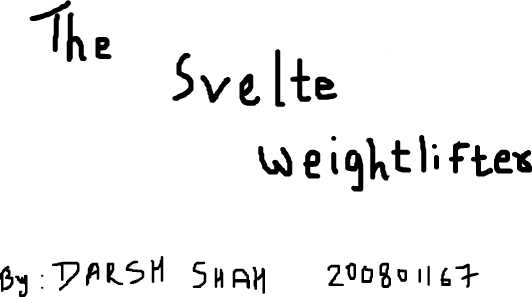 The
Svelte
Weightlifter
By: DARSH SHAH 200801167